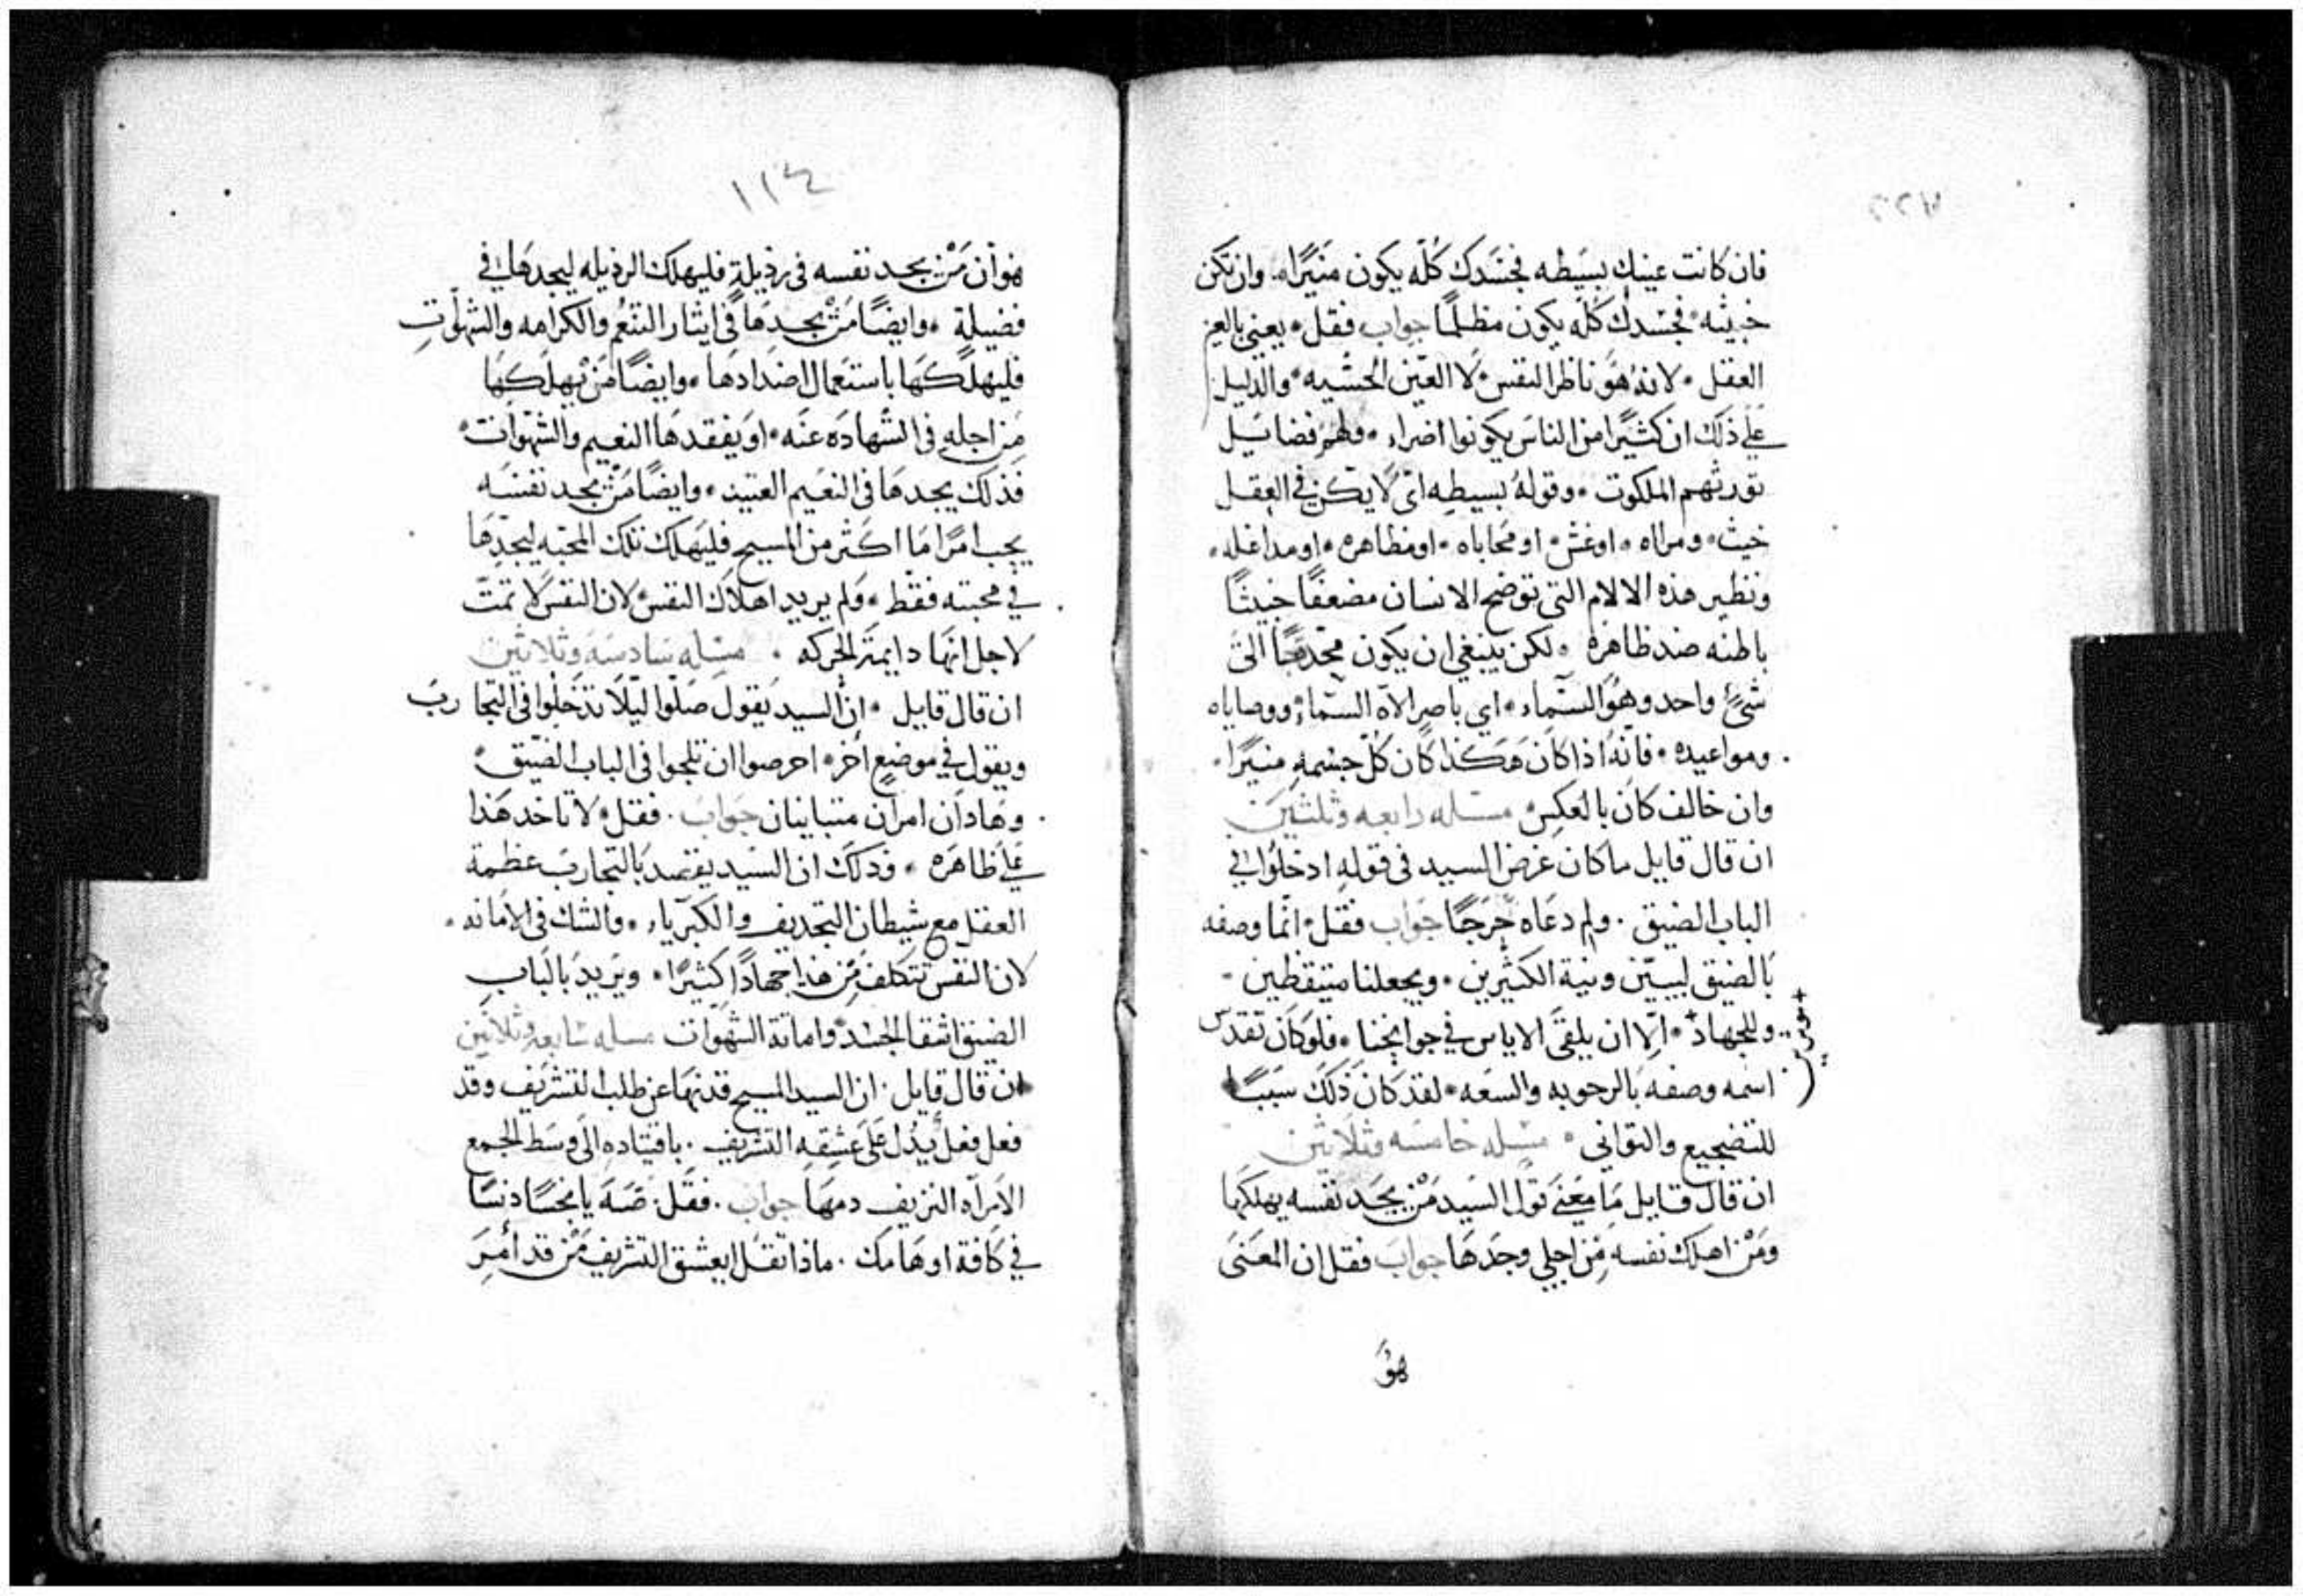 فان كانت عينك بسيطه فجسدك كله يكون منيرا، وان تكن
خبيثه، فجسدك كله يكون مظلما جواب فقل، يعني بالعين
العقل، لانه هو ناظر النفس، لا العين الحسيه، والدليل
على ذلك ان كثيرا من الناس يكونوا اضراء، ولهم فضايل
تورثهم الملكوت، وقوله بسيطه اي لا يكن في العقل
خبث، ومراه، او غش، او محاباه، او مظاهره، او مداغله،
ونظير هذه الالام التي توضح الانسان مضعفا خبيثا
باطنه ضد ظاهره، لكن ينبغي ان يكون محدقا الى
شيٍ واحد وهو السماء، اي باصر الاه السماء، ووصاياه
ومواعيده، فانه اذا كان هكذا كان كل جسمه منيرا،
وان خالف كان بالعكس، مسله رابعه وثلثين
ان قال قايل ما كان غرض السيد في قوله ادخلوا في
الباب الضيق. ولم دعاه حرجا جواب فقل، انما وصفه
بالضيق ليبين ونية الكثيرين، ويجعلنا متيقظين
وللجهاد، الا ان يلقى الاياس في جوانحنا، فلو كان تقدس
اسمه وصفه بالرحوبه والسعه، لقد كان ذلك سببا
للتضجيع والتواني، مسله خامسه وثلاثين
ان قال قايل ما معنى قول السيد من يجد نفسه يهلكها
ومن اهلك نفسه من اجلي وجدها جواب فقل ان المعنى
هو
١١٤
هو ان من يجد نفسه في رذيلة فليهلك الرذيله ليجدها في
فضيلة، وايضا من يجدها في ايثار التنعم والكرامه والشهوات
فليهلكها باستعمال اضدادها، وايضا من يهلكها
من اجله في الشهاده عنه، او يفقدها النعيم والشهوات،
فذلك يجدها في النعيم العتيد، وايضا من يجد نفسه
يحب امرا ما اكثر من المسيح فليهلك تلك المحبه ليجدها
في محبته فقط، ولم يريد اهلاك النفس، لان النفس لا تمت
لاجل انها دايمة الحركه، مسله سادسه وثلاثين
ان قال قايل، ان السيد يقول صلوا ليلا تدخلوا في التجارب
ويقول في موضع اخر، احرصوا ان تلجوا في الباب الضيق،
وهاذان امران متباينان جواب. فقل، لا تاخد هذا
على ظاهره، وذلك ان السيد يقصد بالتجارب عظمة
العقل مع شيطان التجديف والكبرياء، والشك في الامانه،
لان النفس تتكلف من هذا جهادا كثيرا، ويريد بالباب
الضيق اشقا الجسد واماتة الشهوات مسله سابعه وثلاثين
ان قال قايل. ان السيد المسيح قد نها عن طلب التشريف وقد
فعل فعل يدل على عشقه التشريف. باقتياده الى وسط الجمع
الامراه النزيف دمها جواب. فقل. صه يا نجسا دنسا
في كافة اوهامك. ماذا تقل ايعشق التشريف من قد امر